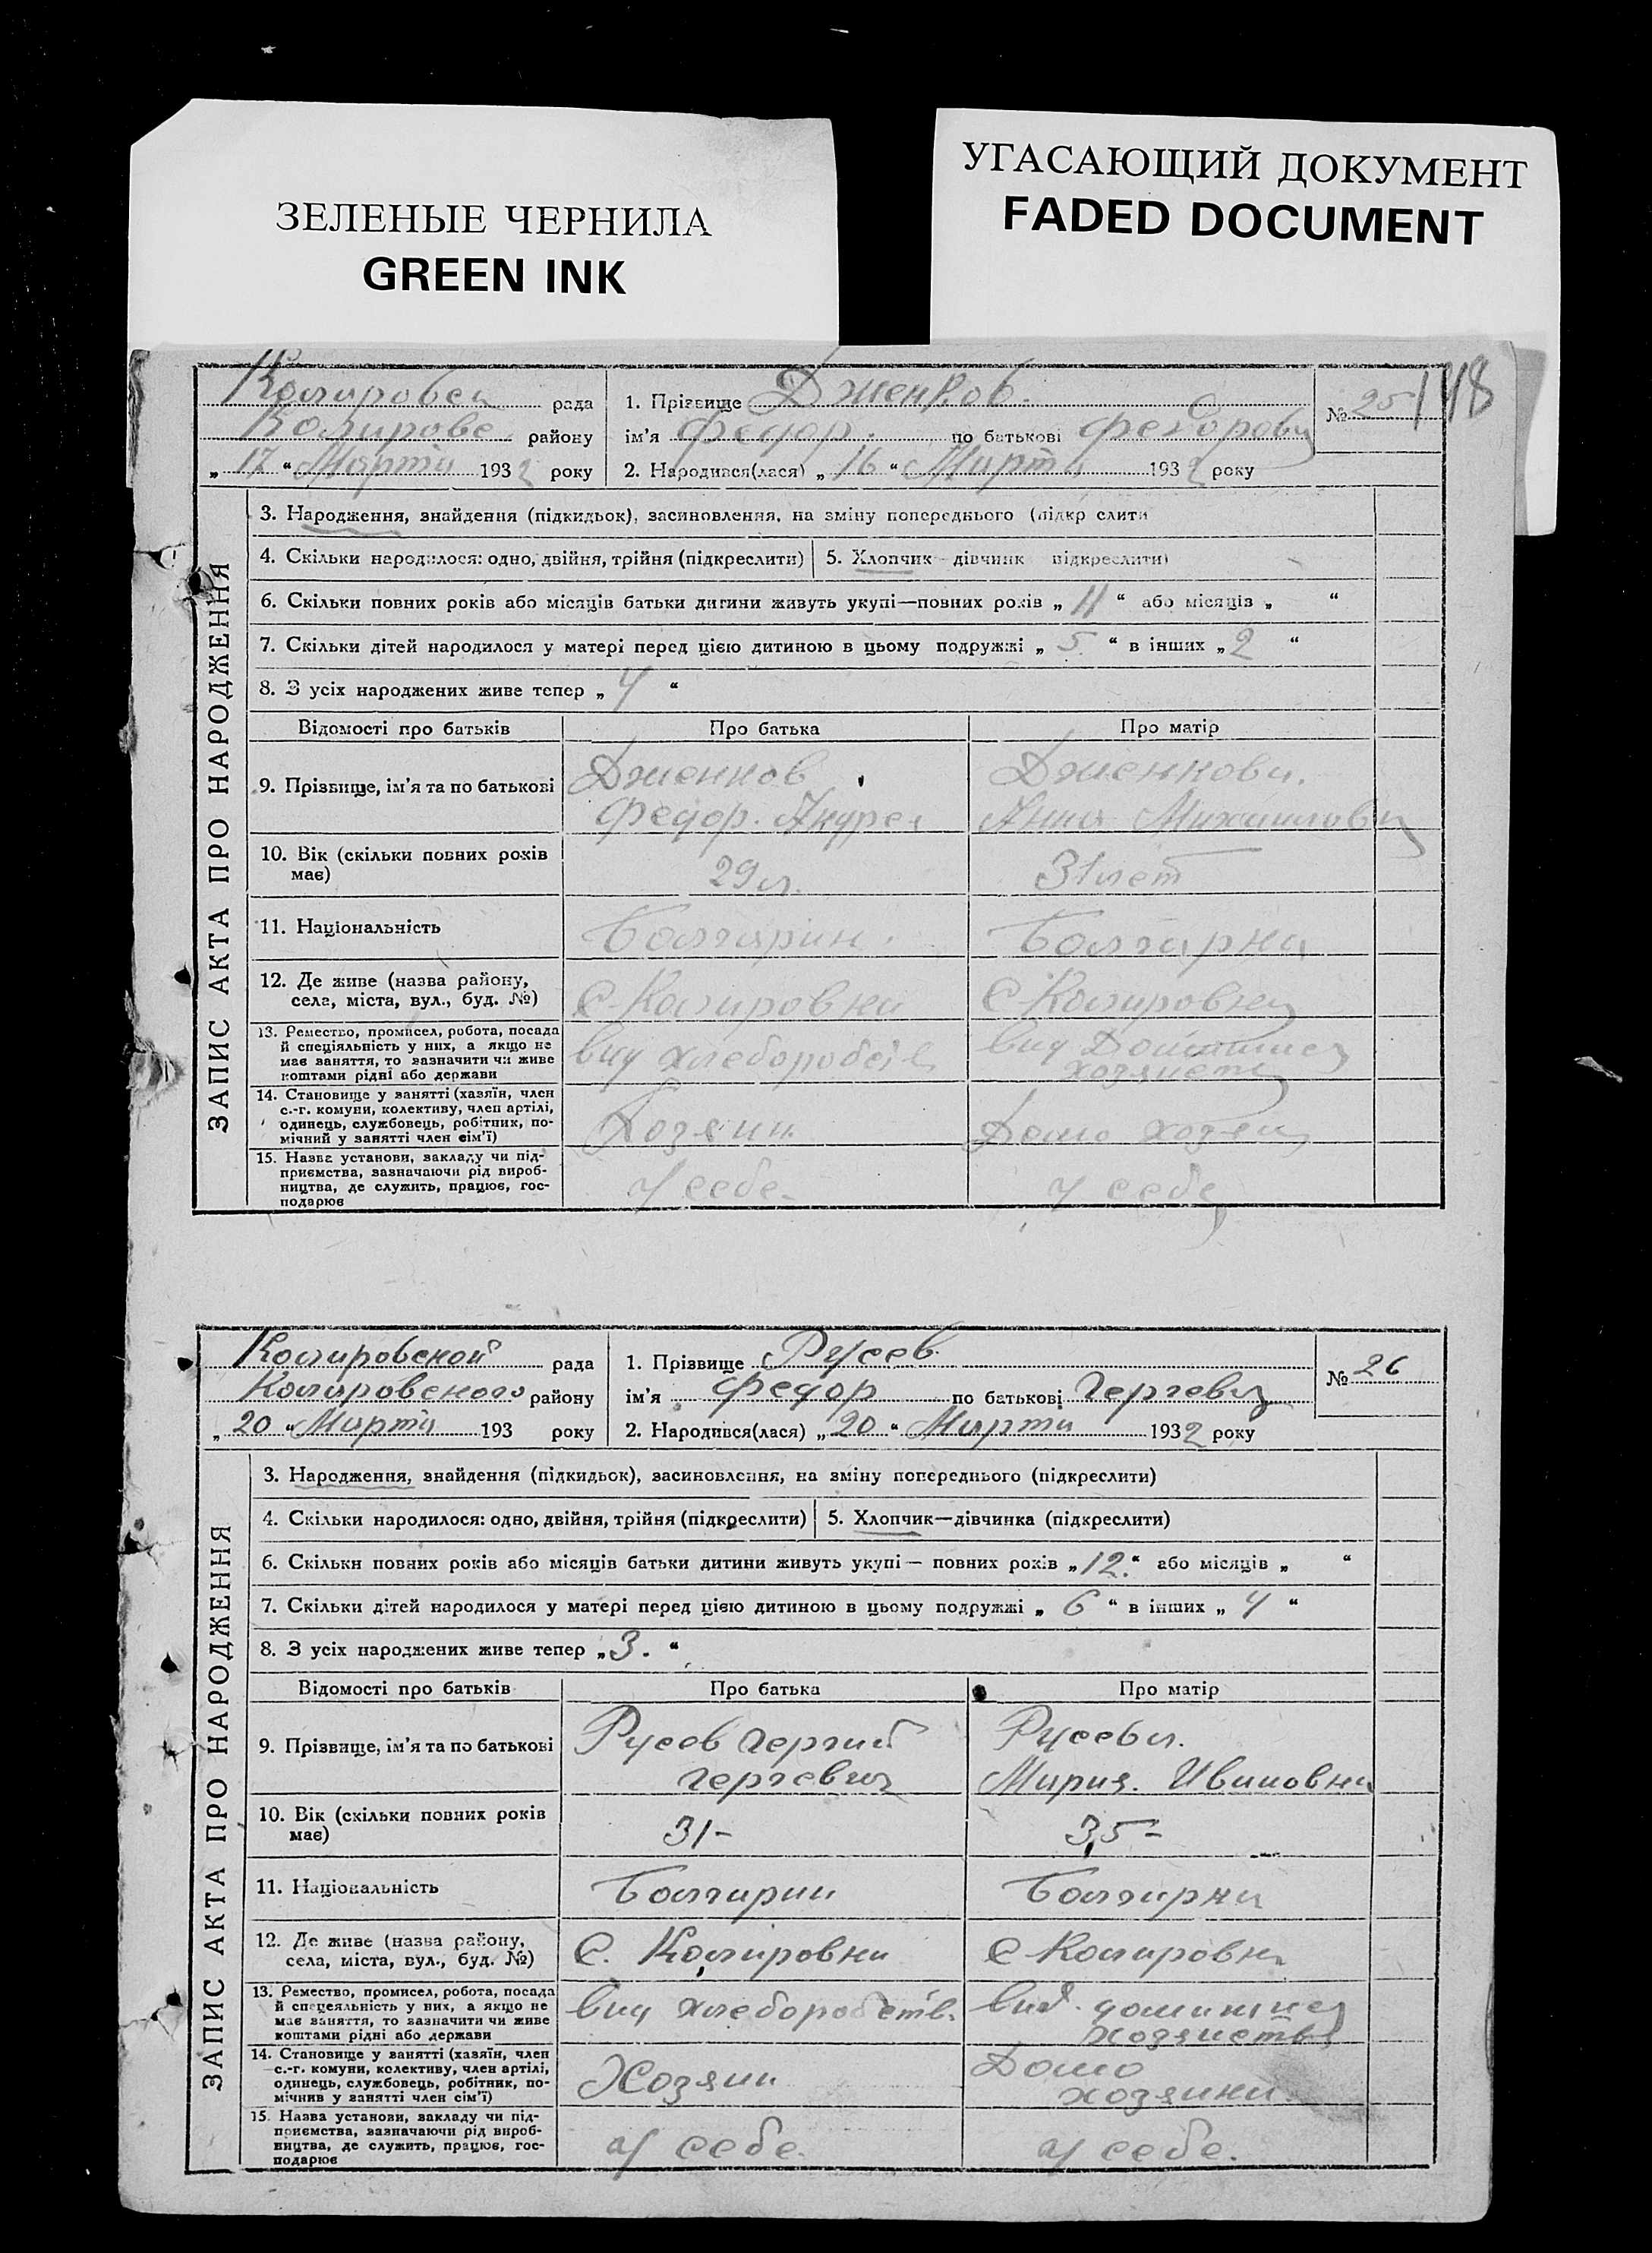 ЗЕЛЕНЫЕ ЧЕРНИЛА
GREEN INK
УГАСАЮЩИЙ ДОКУМЕНТ
FADED DOCUMENT
148
рада
району
„ 17 “ Марта 1932 року
1. Прізвище Дженков.
ім'я Федор. по батькові Федорови
2. Народився(лася) „ 16 “ Марта 1932 року
№ 25
ЗАПИС АКТА ПРО НАРОДЖЕННЯ
3. Народження, знайдення (підкидьок), засиновлення, на зміну попереднього
4. Скільки народилося: одно, двійня, трійня (підкреслити)
5. Хлопчик дівчинк підкреслити)
6. Скільки повних років або місяців батьки дитини живуть укупі—повних років „ 11 “ або місяців „ “
7. Скільки дітей народилося у матері перед цією дитиною в цьому подружжі „ 5 “ в інших „ 2 “
8. З усіх народжених живе тепер „ 4 “
Відомості про батьків
Про батька
Про матір
9. Прізвище, ім'я та по батькові
Дженков
Федор. Андрее
Дженкова.
Анна Михаиловн
10. Вік (скільки повних років
має)
29 л.
31 лет
11. Національність
Болгарин.
Болгарка
12. Де живе (назва району,
села, міста, вул., буд. №)
С Коларовка
С Коларовка
13. Ремество, промисел, робота, посада
й спеціяльність у них, а якщо не
має заняття, то зазначити чи живе
коштами рідні або держави
вид хлеборобств
вид Домашнее
хозяйств
14. Становище у занятті (хазяїн, член
с.-г. комуни, колективу, член артілі,
одинець, службовець, робітник, по-
мічний у занятті член сім'ї)
Хозяин
Домо хозяй
15. Назва установи, закладу чи під-
приємства, зазначаючи рід вироб-
ництва, де служить, працює, гос-
подарює
у себе
у себе
Коларовской рада
Коларовского району
„ 20 “ Марта 193 року
1. Прізвище Русев
ім'я Федор по батькові Гергевич
2. Народився(лася) „ 20 “ Марта 1932 року
№ 26
ЗАПИС АКТА ПРО НАРОДЖЕННЯ
3. Народження, знайдення (підкидьок), засиновлення, на зміну попереднього (підкреслити)
4. Скільки народилося: одно, двійня, трійня (підкреслити)
5. Хлопчик—дівчинка (підкреслити)
6. Скільки повних років або місяців батьки дитини живуть укупі — повних років „ 12. “ або місяців „ “
7. Скільки дітей народилося у матері перед цією дитиною в цьому подружжі „ 6 “ в інших „ 4 “
8. З усіх народжених живе тепер „ 3. “
Відомості про батьків
Про батька
Про матір
9. Прізвище, ім'я та по батькові
Русев Гергий
Гергевич
Русева.
Мария. Ивановна
10. Вік (скільки повних років
має)
31-
35-
11. Національність
Болгарин
Болгарка
12. Де живе (назва району,
села, міста, вул., буд. №)
С. Коларовка
С Коларовка
13. Ремество, промисел, робота, посада
й спецеяльність у них, а якщо не
має заняття, то зазначити чи живе
коштами рідні або держави
вид хлеборобств.
вид. домашнее
хозяйств
14. Становище у занятті (хазяїн, член
с.-г. комуни, колективу, член артілі,
одинець, службовець, робітник, по-
мічнив у занятті член сім'ї)
Хозяин
Домо
хозяйка
15. Назва установи, закладу чи під-
приємства, зазначаючи рід вироб-
ництва, де служить, працює, гос-
подарює
у себе
у себе.